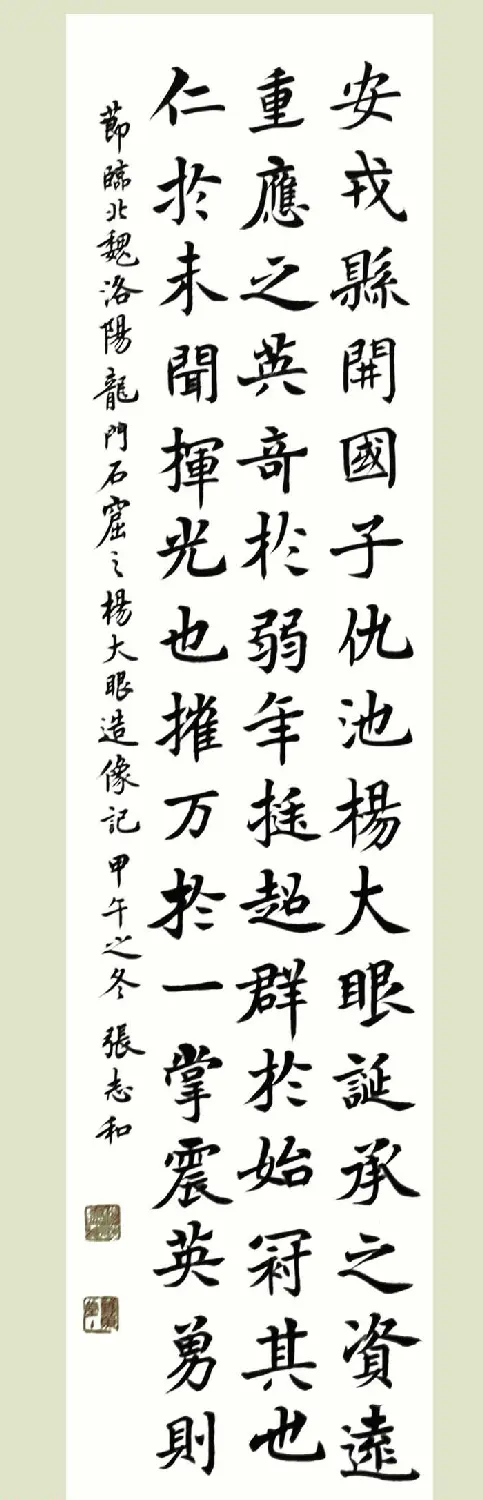 安戎縣開國子仇池楊大眼誕承之資遠
重應之英奇於弱年挺超群於始冠其也
仁於未聞揮光也摧万於一掌震英勇則
莭臨北魏洛陽龍門石窟之楊大眼造像記 甲午之冬 張志和